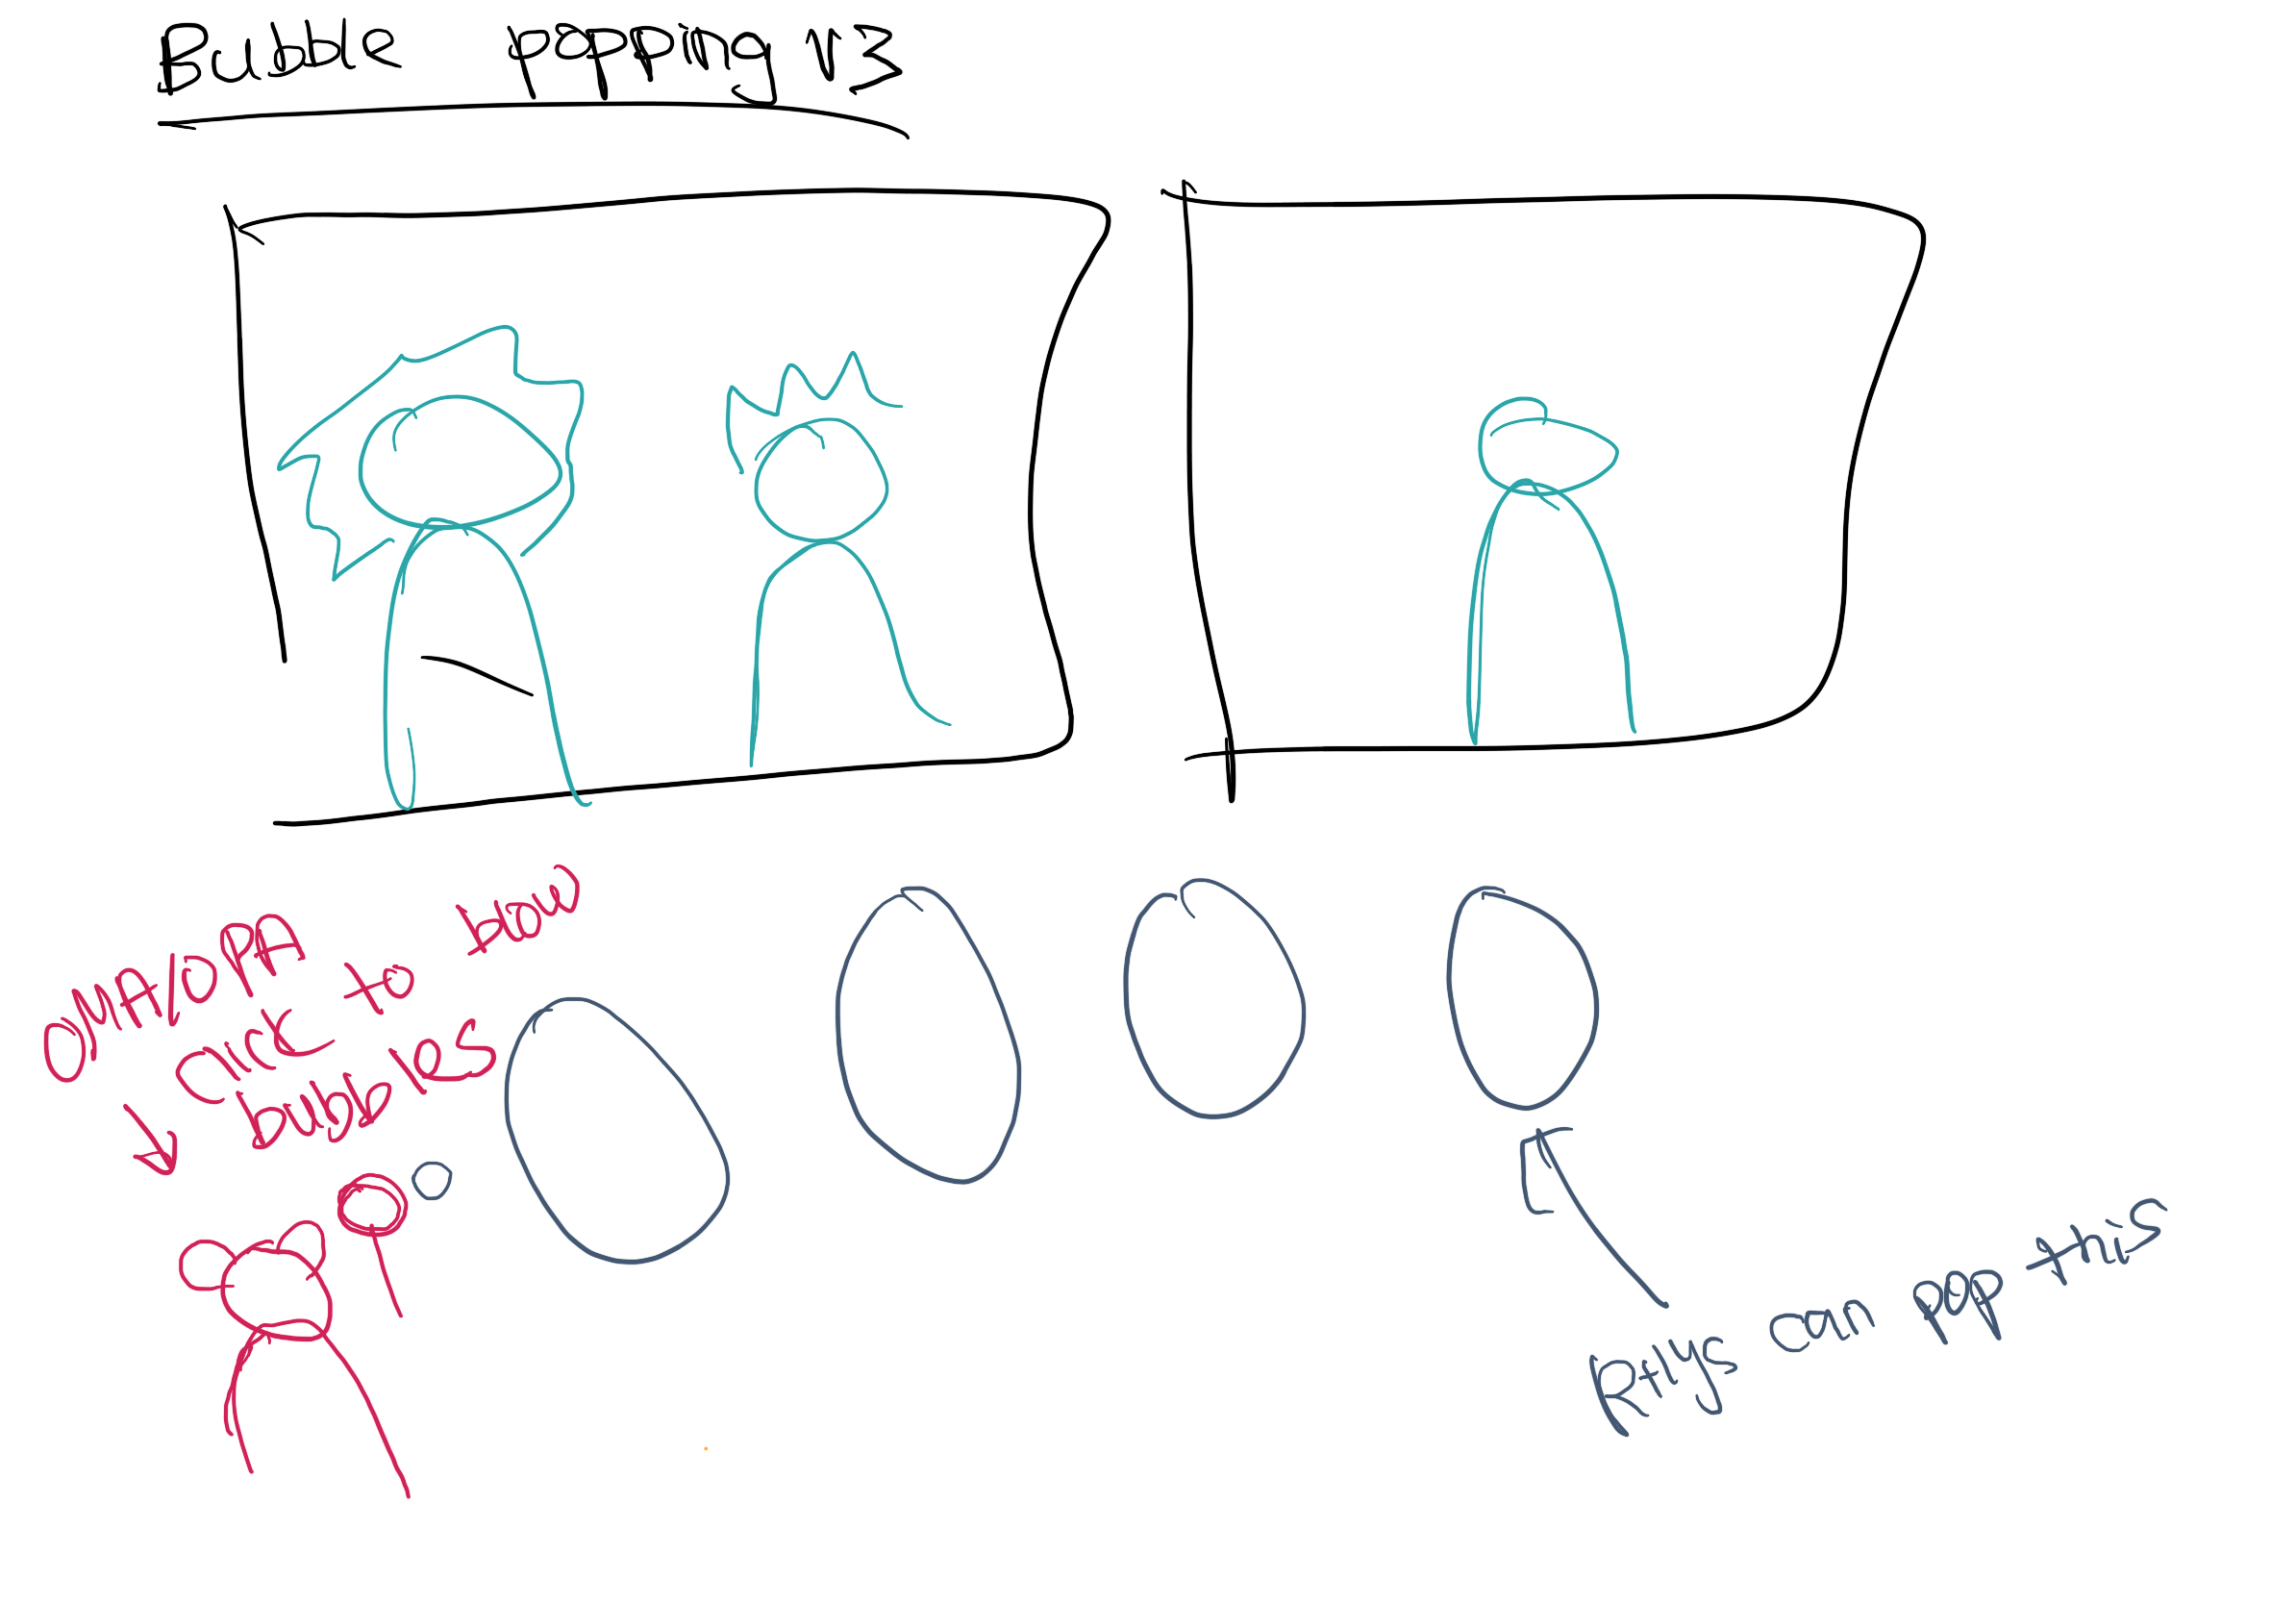 Bubble popping v3
OMAIORA
click to blow
bubbles
Rhys can pop this